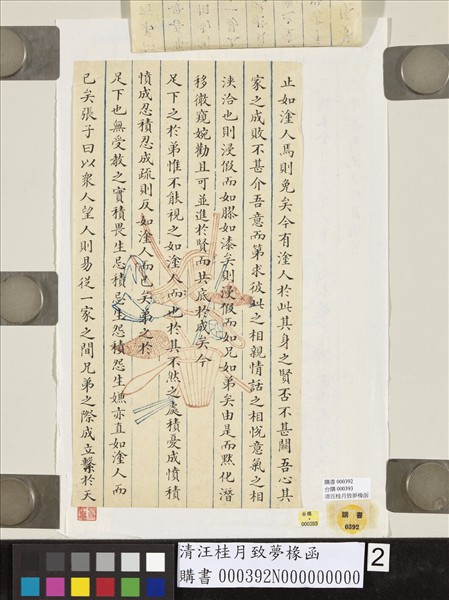 止如塗人焉則免矣今有塗人於此其身之賢否不甚關吾心其
家之成敗不甚介吾意而第求彼此之相親情話之相悅意氣之相
浹洽也則浸假而如膠如漆矣則浸假而如兄如弟矣由是而默化潛
移微窺婉勸且可並進於賢而共底於成矣今
足下之於弟惟不能視之如塗人而也於其不然之處積憂成憤積
憤成忍積忍成疏則反如塗人而已矣弟之於
足下也無受教之實積畏生忌積忌生怨積怨生嫌亦直如塗人而
已矣張子曰以眾人望人則易從一家之間兄弟之際成立繫於天
購書 000392
台購 000393
清汪桂月致夢椽函
台購
000393
購書
0392
清汪桂月致夢椽函
購書 000392N000000000
2